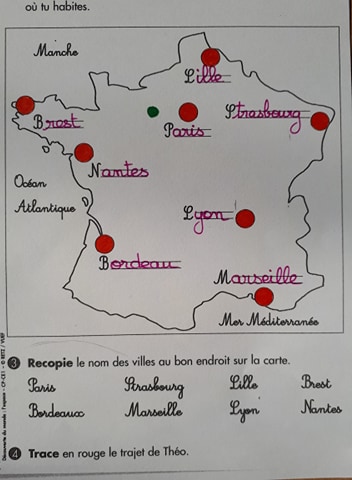 où tu habites.
Manche
Lille
Brest
Strasbourg
Paris
Nantes
Océan
Atlantique
Lyon
Bordeau
Marseille
Mer Méditerranée
3 Recopie le nom des villes au bon endroit sur la carte.
Paris Strasbourg Lille Brest
Bordeaux Marseille Lyon Nantes
4 Trace en rouge le trajet de Théo.
Découverte du monde : l'espace - CP-CE1 - © RETZ / VUEF